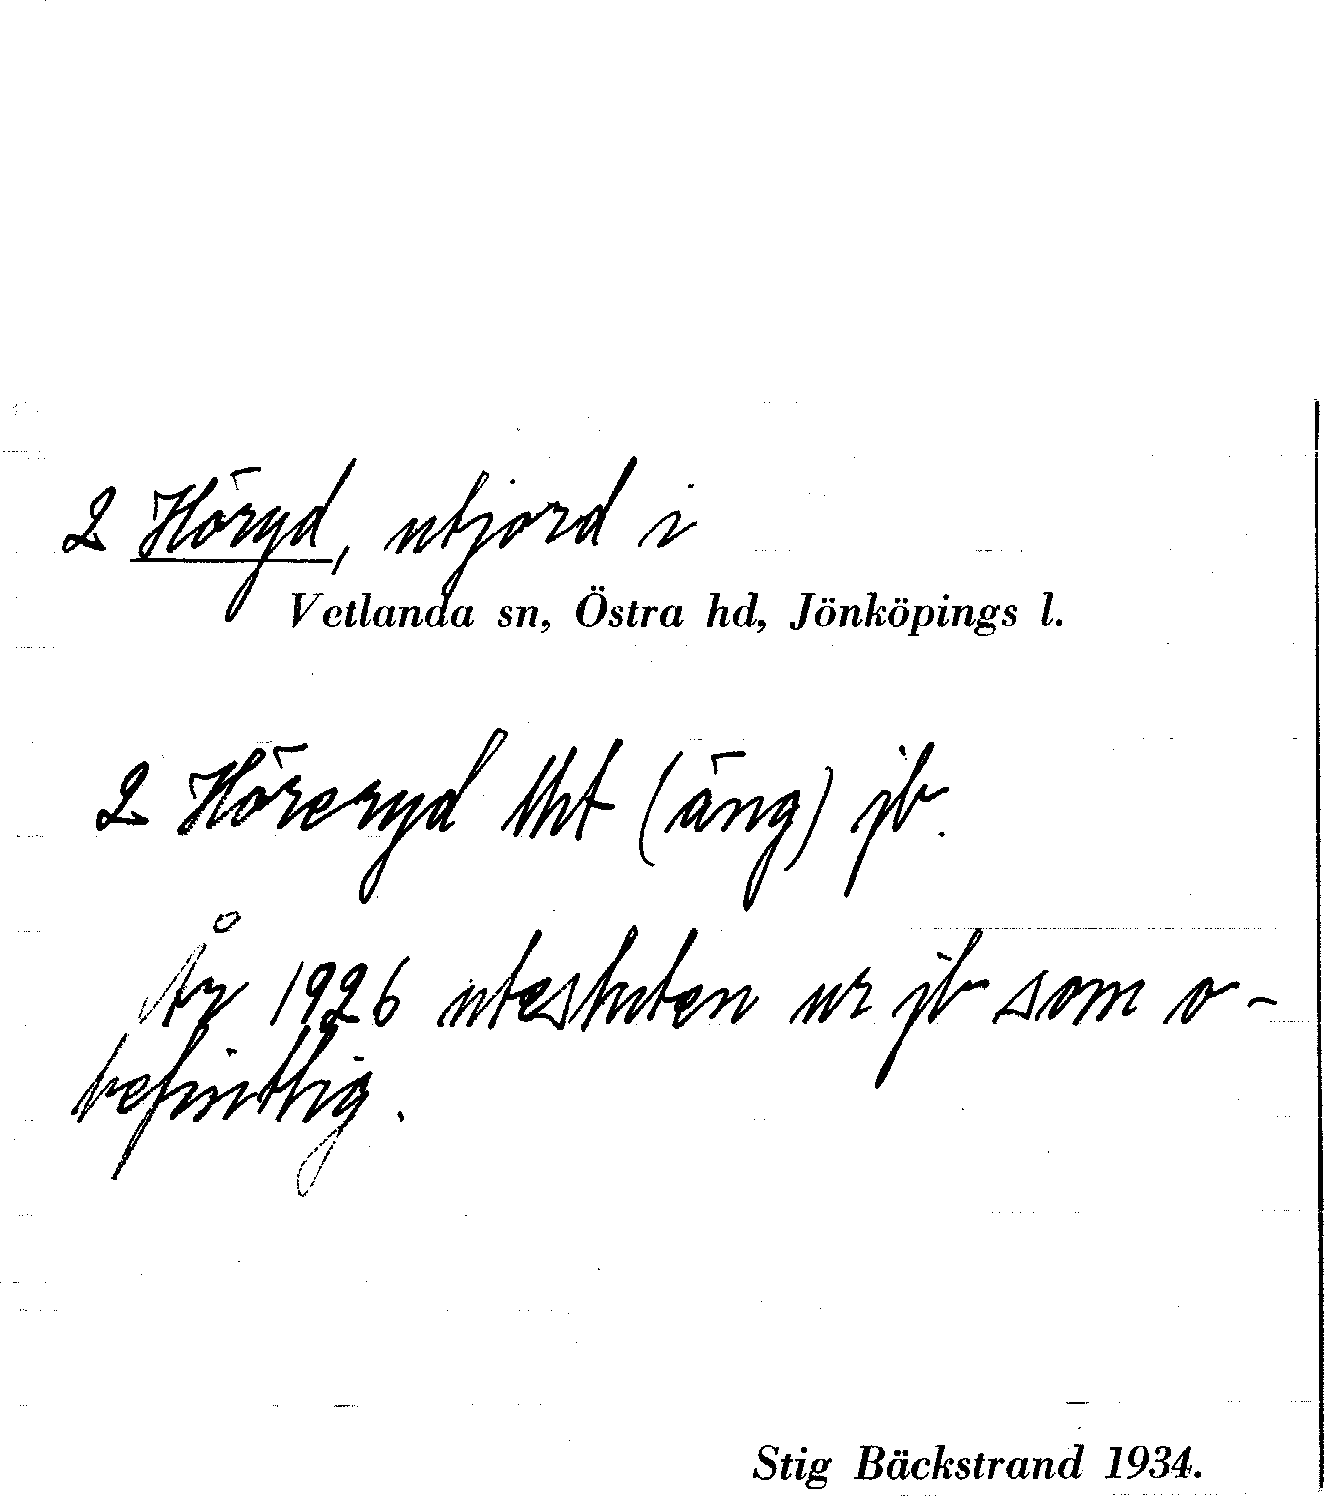 2 Höryd, utjord i
Vetlanda sn, Östra hd, Jönköpings l.
2 Höreryd Uht (äng) jb.
År 1926 utesluten ur jb som o-
befintlig.
Stig Bäckstrand 1934.